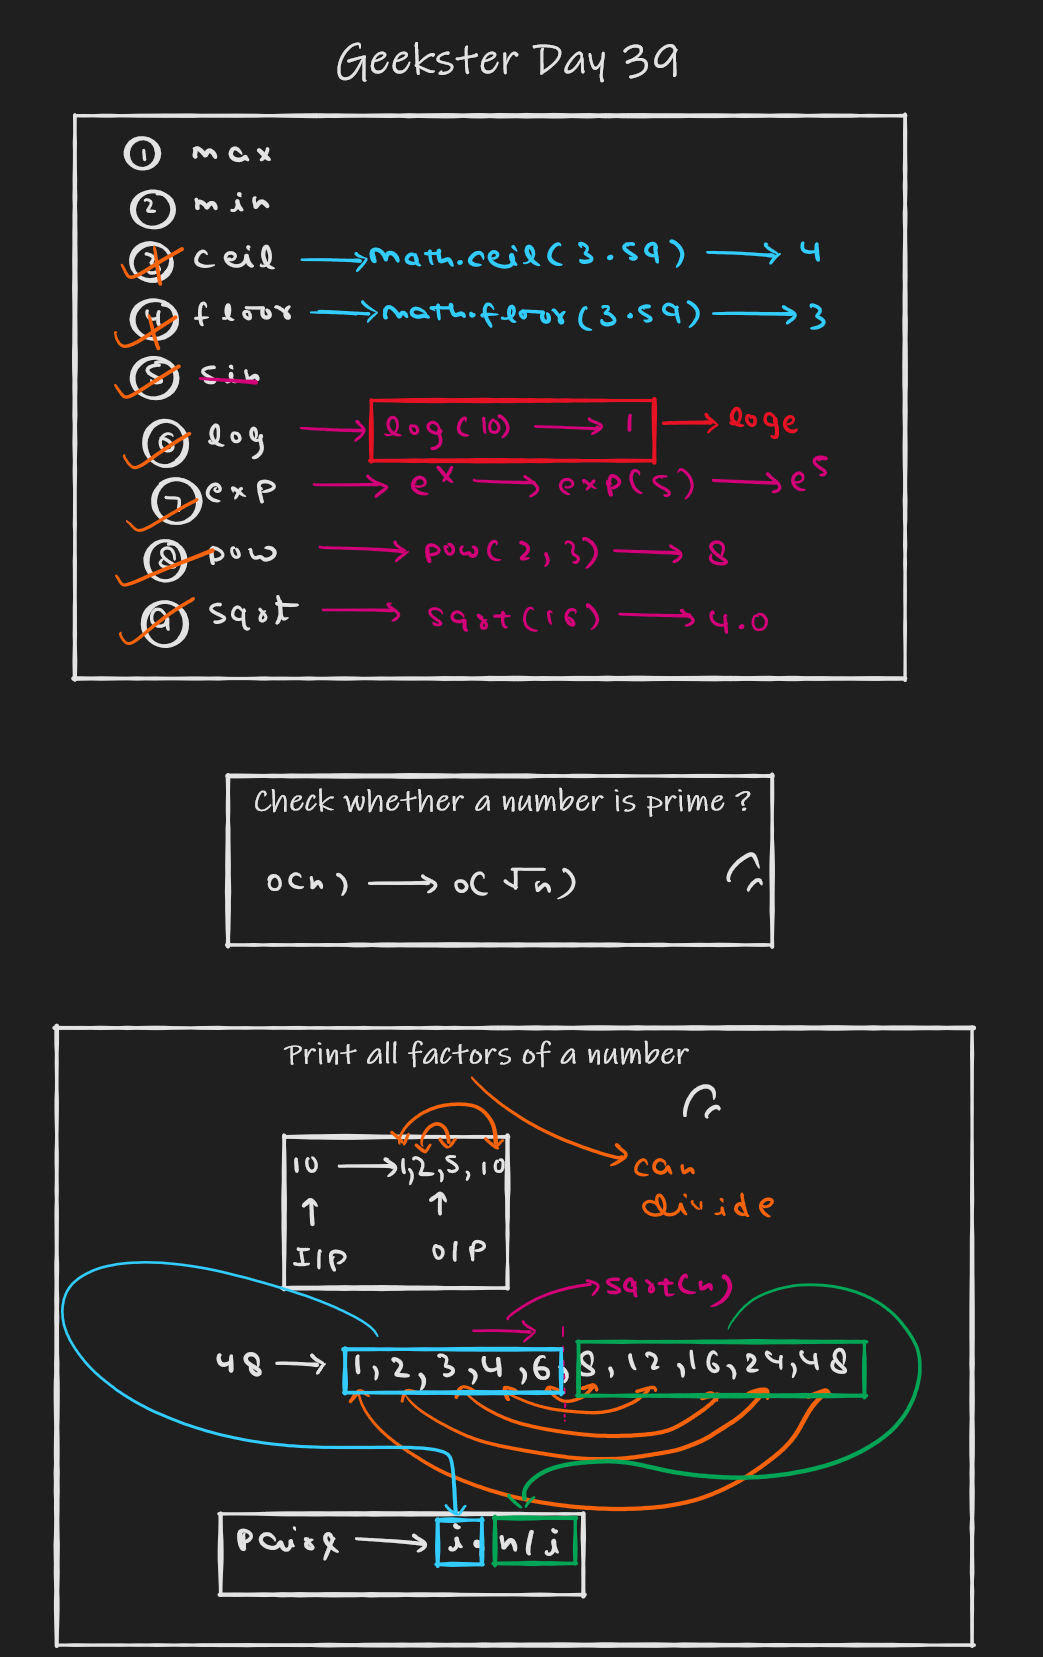 Geekster Day 39
① max
② min
③ ceil → math.ceil(3.59) → 4
④ floor → math.floor(3.59) → 3
⑤ sin
⑥ log → log(10) → 1 → loge
⑦ exp → e^x → exp(5) → e^5
⑧ pow → pow(2,3) → 8
⑨ sqrt → sqrt(16) → 4.0
Check whether a number is prime ?
O(n) → O(√n)
Print all factors of a number
10 → 1,2,5,10
can
divide
I/P O/P
sqrt(n)
48 → 1,2,3,4,6,8,12,16,24,48
→ i. n/i